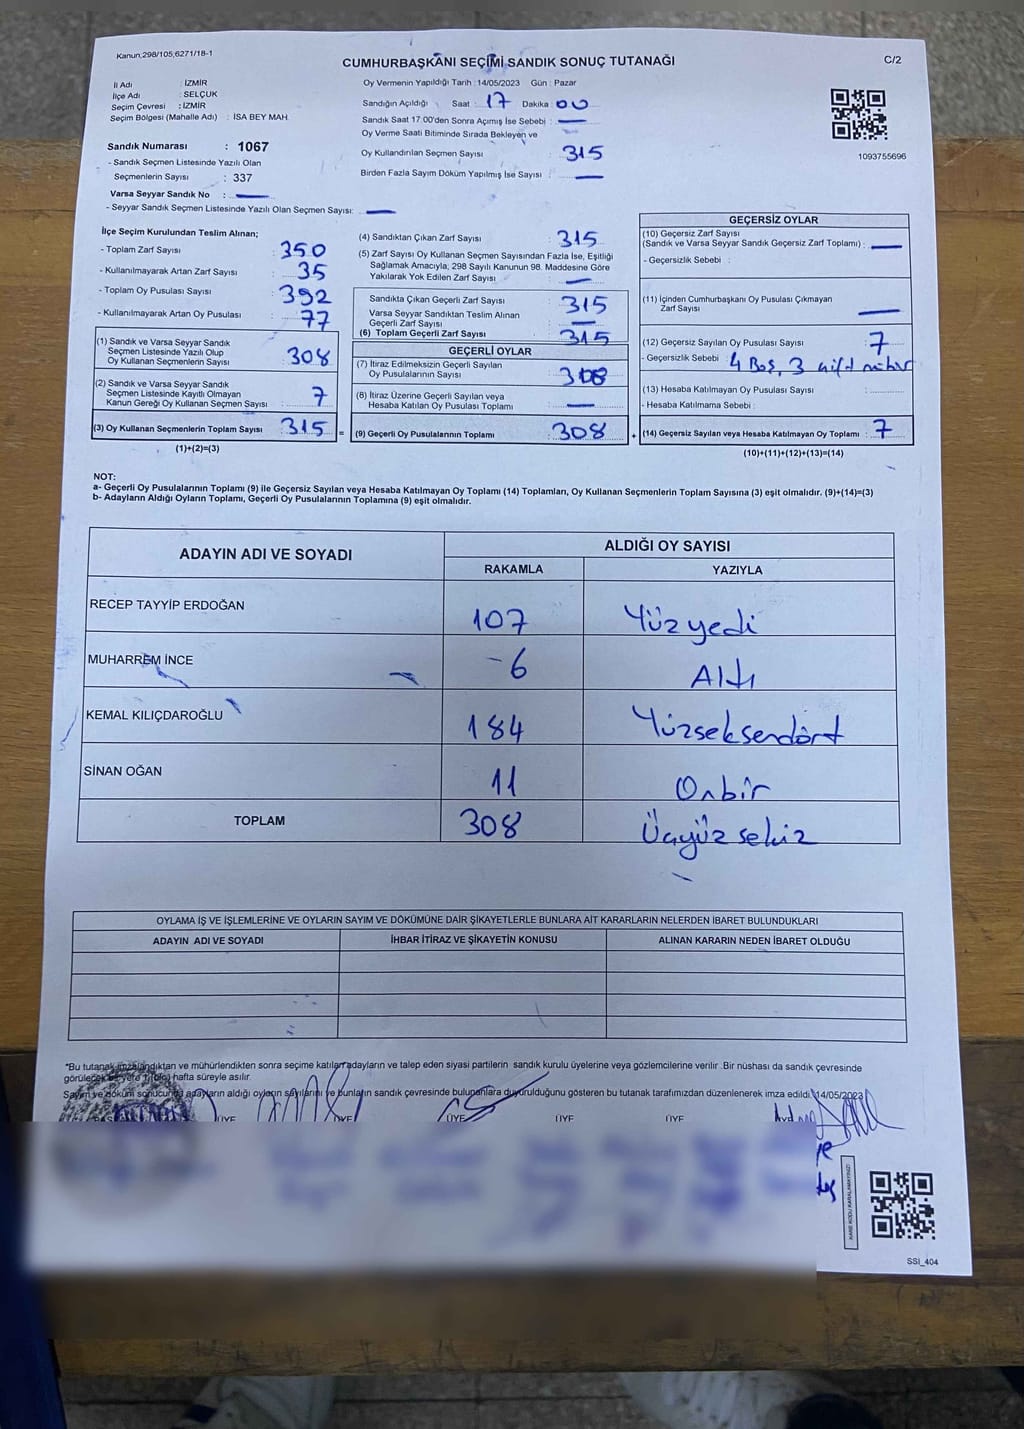 Kanun,298/105,6271/18-1
CUMHURBAŞKANI SEÇİMİ SANDIK SONUÇ TUTANAĞI
C/2
İl Adı : İZMİR
İlçe Adı : SELÇUK
Seçim Çevresi : İZMİR
Seçim Bölgesi (Mahalle Adı) : ISA BEY MAH.
Oy Vermenin Yapıldığı Tarih : 14/05/2023 Gün : Pazar
Sandığın Açıldığı Saat : 17 Dakika : 00
Sandık Saat 17:00'den Sonra Açımış İse Sebebi : —
Oy Verme Saati Bitiminde Sırada Bekleyen ve
Oy Kullandırılan Seçmen Sayısı : 315
Birden Fazla Sayım Döküm Yapılmış İse Sayısı : —
1093755696
Sandık Numarası : 1067
- Sandık Seçmen Listesinde Yazılı Olan
Seçmenlerin Sayısı : 337
Varsa Seyyar Sandık No : —
- Seyyar Sandık Seçmen Listesinde Yazılı Olan Seçmen Sayısı: —
İlçe Seçim Kurulundan Teslim Alınan;
- Toplam Zarf Sayısı : 350
- Kullanılmayarak Artan Zarf Sayısı : 35
- Toplam Oy Pusulası Sayısı : 392
- Kullanılmayarak Artan Oy Pusulası : 77
(1) Sandık ve Varsa Seyyar Sandık
Seçmen Listesinde Yazılı Olup
Oy Kullanan Seçmenlerin Sayısı : 308
(2) Sandık ve Varsa Seyyar Sandık
Seçmen Listesinde Kayıtlı Olmayan
Kanun Gereği Oy Kullanan Seçmen Sayısı : 7
(3) Oy Kullanan Seçmenlerin Toplam Sayısı : 315 =
(1)+(2)=(3)
(4) Sandıktan Çıkan Zarf Sayısı : 315
(5) Zarf Sayısı Oy Kullanan Seçmen Sayısından Fazla İse, Eşitliği
Sağlamak Amacıyla; 298 Sayılı Kanunun 98. Maddesine Göre
Yakılarak Yok Edilen Zarf Sayısı : —
Sandıkta Çıkan Geçerli Zarf Sayısı : 315
Varsa Seyyar Sandıktan Teslim Alınan
Geçerli Zarf Sayısı : —
(6) Toplam Geçerli Zarf Sayısı : 315
GEÇERLİ OYLAR
(7) İtiraz Edilmeksizin Geçerli Sayılan
Oy Pusulalarının Sayısı : 308
(8) İtiraz Üzerine Geçerli Sayılan veya
Hesaba Katılan Oy Pusulası Toplamı : —
(9) Geçerli Oy Pusulalarının Toplamı : 308 +
GEÇERSİZ OYLAR
(10) Geçersiz Zarf Sayısı
(Sandık ve Varsa Seyyar Sandık Geçersiz Zarf Toplamı) : —
- Geçersizlik Sebebi :
(11) İçinden Cumhurbaşkanı Oy Pusulası Çıkmayan
Zarf Sayısı : —
(12) Geçersiz Sayılan Oy Pusulası Sayısı : 7
- Geçersizlik Sebebi : 4 Boş, 3 çift mühür
(13) Hesaba Katılmayan Oy Pusulası Sayısı :
- Hesaba Katılmama Sebebi :
(14) Geçersiz Sayılan veya Hesaba Katılmayan Oy Toplamı : 7
(10)+(11)+(12)+(13)=(14)
NOT:
a- Geçerli Oy Pusulalarının Toplamı (9) ile Geçersiz Sayılan veya Hesaba Katılmayan Oy Toplamı (14) Toplamları, Oy Kullanan Seçmenlerin Toplam Sayısına (3) eşit olmalıdır. (9)+(14)=(3)
b- Adayların Aldığı Oyların Toplamı, Geçerli Oy Pusulalarının Toplamına (9) eşit olmalıdır.
ADAYIN ADI VE SOYADI ALDIĞI OY SAYISI
RAKAMLA YAZIYLA
RECEP TAYYİP ERDOĞAN 107 Yüz yedi
MUHARREM İNCE -6 Altı
KEMAL KILIÇDAROĞLU 184 Yüzseksendört
SİNAN OĞAN 11 Onbir
TOPLAM 308 Üçyüz sekiz
OYLAMA İŞ VE İŞLEMLERİNE VE OYLARIN SAYIM VE DÖKÜMÜNE DAİR ŞİKAYETLERLE BUNLARA AİT KARARLARIN NELERDEN İBARET BULUNDUKLARI
ADAYIN ADI VE SOYADI İHBAR İTİRAZ VE ŞİKAYETİN KONUSU ALINAN KARARIN NEDEN İBARET OLDUĞU
*Bu tutanak imzalandıktan ve mühürlendikten sonra seçime katılan adayların ve talep eden siyasi partilerin sandık kurulu üyelerine veya gözlemcilerine verilir .Bir nüshası da sandık çevresinde
görülecek bir yere 1(bir) hafta süreyle asılır.
Sayım ve döküm sonucunda adayların aldığı oyların sayılarını ve bunların sandık çevresinde bulunanlara duyurulduğunu gösteren bu tutanak tarafımızdan düzenlenerek imza edildi. 14/05/2023
ÜYE ÜYE ÜYE ÜYE ÜYE
KARE KODU KARALAMAYINIZ!
SSİ_404